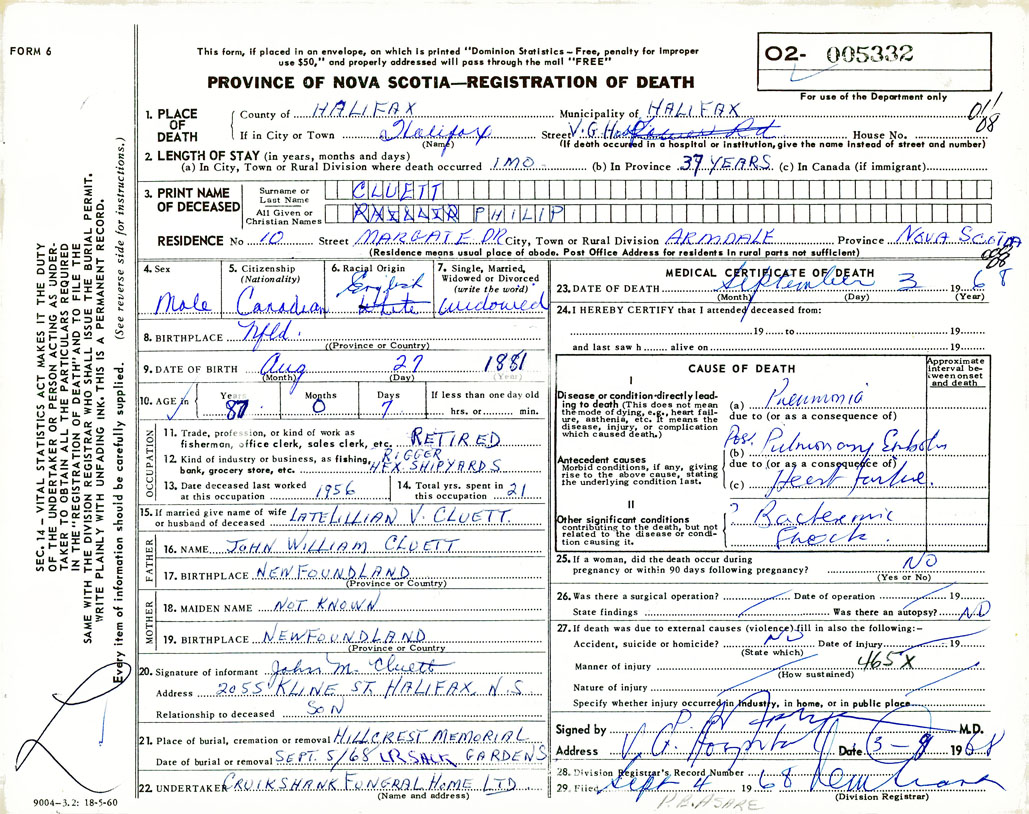 FORM 6
This form, if placed in an envelope, on which is printed "Dominion Statistics – Free, penalty for improper
use $50," and properly addressed will pass through the mail "FREE"
PROVINCE OF NOVA SCOTIA—REGISTRATION OF DEATH
O2- 005332
For use of the Department only
1. PLACE OF DEATH County of HALIFAX Municipality of HALIFAX
If in City or Town Halifax Street V.G. Hosp House No.
(Name) (If death occurred in a hospital or institution, give the name instead of street and number)
2. LENGTH OF STAY (in years, months and days)
(a) In City, Town or Rural Division where death occurred 1 MO. (b) In Province 37 YEARS. (c) In Canada (if immigrant)
3. PRINT NAME OF DECEASED
Surname or Last Name CLUETT
All Given or Christian Names PHILIP
RESIDENCE No 10 Street MARGATE DR City, Town or Rural Division ARMDALE Province NOVA SCOTIA
(Residence means usual place of abode. Post Office Address for residents in rural parts not sufficient)
4. Sex Male
5. Citizenship (Nationality) Canadian
6. Racial Origin English White
7. Single, Married, Widowed or Divorced (write the word) widowed
8. BIRTHPLACE Nfld.
((Province or Country)
9. DATE OF BIRTH Aug 27 1881
(Month) (Day) (Year)
10. AGE in Years 87 Months 0 Days 7 If less than one day old hrs. or min.
OCCUPATION
11. Trade, profession, or kind of work as fisherman, office clerk, sales clerk, etc. RETIRED
12. Kind of industry or business, as fishing, bank, grocery store, etc. RIGGER HFX. SHIPYARDS
13. Date deceased last worked at this occupation 1956
14. Total yrs. spent in this occupation 21
15. If married give name of wife or husband of deceased LATE LILLIAN V. CLUETT.
FATHER
16. NAME JOHN WILLIAM CLUETT
17. BIRTHPLACE NEWFOUNDLAND
(Province or Country)
MOTHER
18. MAIDEN NAME NOT KNOWN
19. BIRTHPLACE NEWFOUNDLAND
(Province or Country
20. Signature of informant John M. Cluett
Address 2055 KLINE ST. HALIFAX, N.S
Relationship to deceased SON
21. Place of burial, cremation or removal HILLCREST MEMORIAL GARDENS
Date of burial or removal SEPT. 5/68
22. UNDERTAKER CRUIKSHANK FUNERAL HOME LTD.
(Name and address)
MEDICAL CERTIFICATE OF DEATH
23. DATE OF DEATH September 3 1968
(Month) (Day) (Year)
24. I HEREBY CERTIFY that I attended deceased from:
19 to 19
and last saw h alive on 19
CAUSE OF DEATH
Approximate interval between onset and death
I
Disease or condition directly leading to death (This does not mean the mode of dying, e.g., heart failure, asthenia, etc. It means the disease, injury, or complication which caused death.)
(a) Pneumonia
due to (or as a consequence of)
Antecedent causes
Morbid conditions, if any, giving rise to the above cause, stating the underlying condition last.
(b) Poss. Pulmonary Embolus
due to (or as a consequence of)
(c) Heart Failure.
II
Other significant conditions contributing to the death, but not related to the disease or condition causing it.
? Bacteremic Shock.
25. If a woman, did the death occur during pregnancy or within 90 days following pregnancy? NO
(Yes or No)
26. Was there a surgical operation? Date of operation 19
State findings Was there an autopsy? NO
27. If death was due to external causes (violence) fill in also the following:-
Accident, suicide or homicide? NO Date of injury 19
(State which)
Manner of injury 465X
(How sustained)
Nature of injury
Specify whether injury occurred in Industry, in home, or in public place
Signed by M.D.
Address V.G. Hospital Date 3-9 1968
28. Division Registrar's Record Number
29. Filed Sept 4 1968
(Division Registrar)
P.B. ASARE
SEC. 14 – VITAL STATISTICS ACT MAKES IT THE DUTY
OF THE UNDERTAKER OR PERSON ACTING AS UNDER-
TAKER TO OBTAIN ALL THE PARTICULARS REQUIRED
IN THE "REGISTRATION OF DEATH" AND TO FILE THE
SAME WITH THE DIVISION REGISTRAR WHO SHALL ISSUE THE BURIAL PERMIT.
WRITE PLAINLY WITH UNFADING INK. THIS IS A PERMANENT RECORD.
Every item of information should be carefully supplied. (See reverse side for instructions.)
9004-3.2: 18-5-60